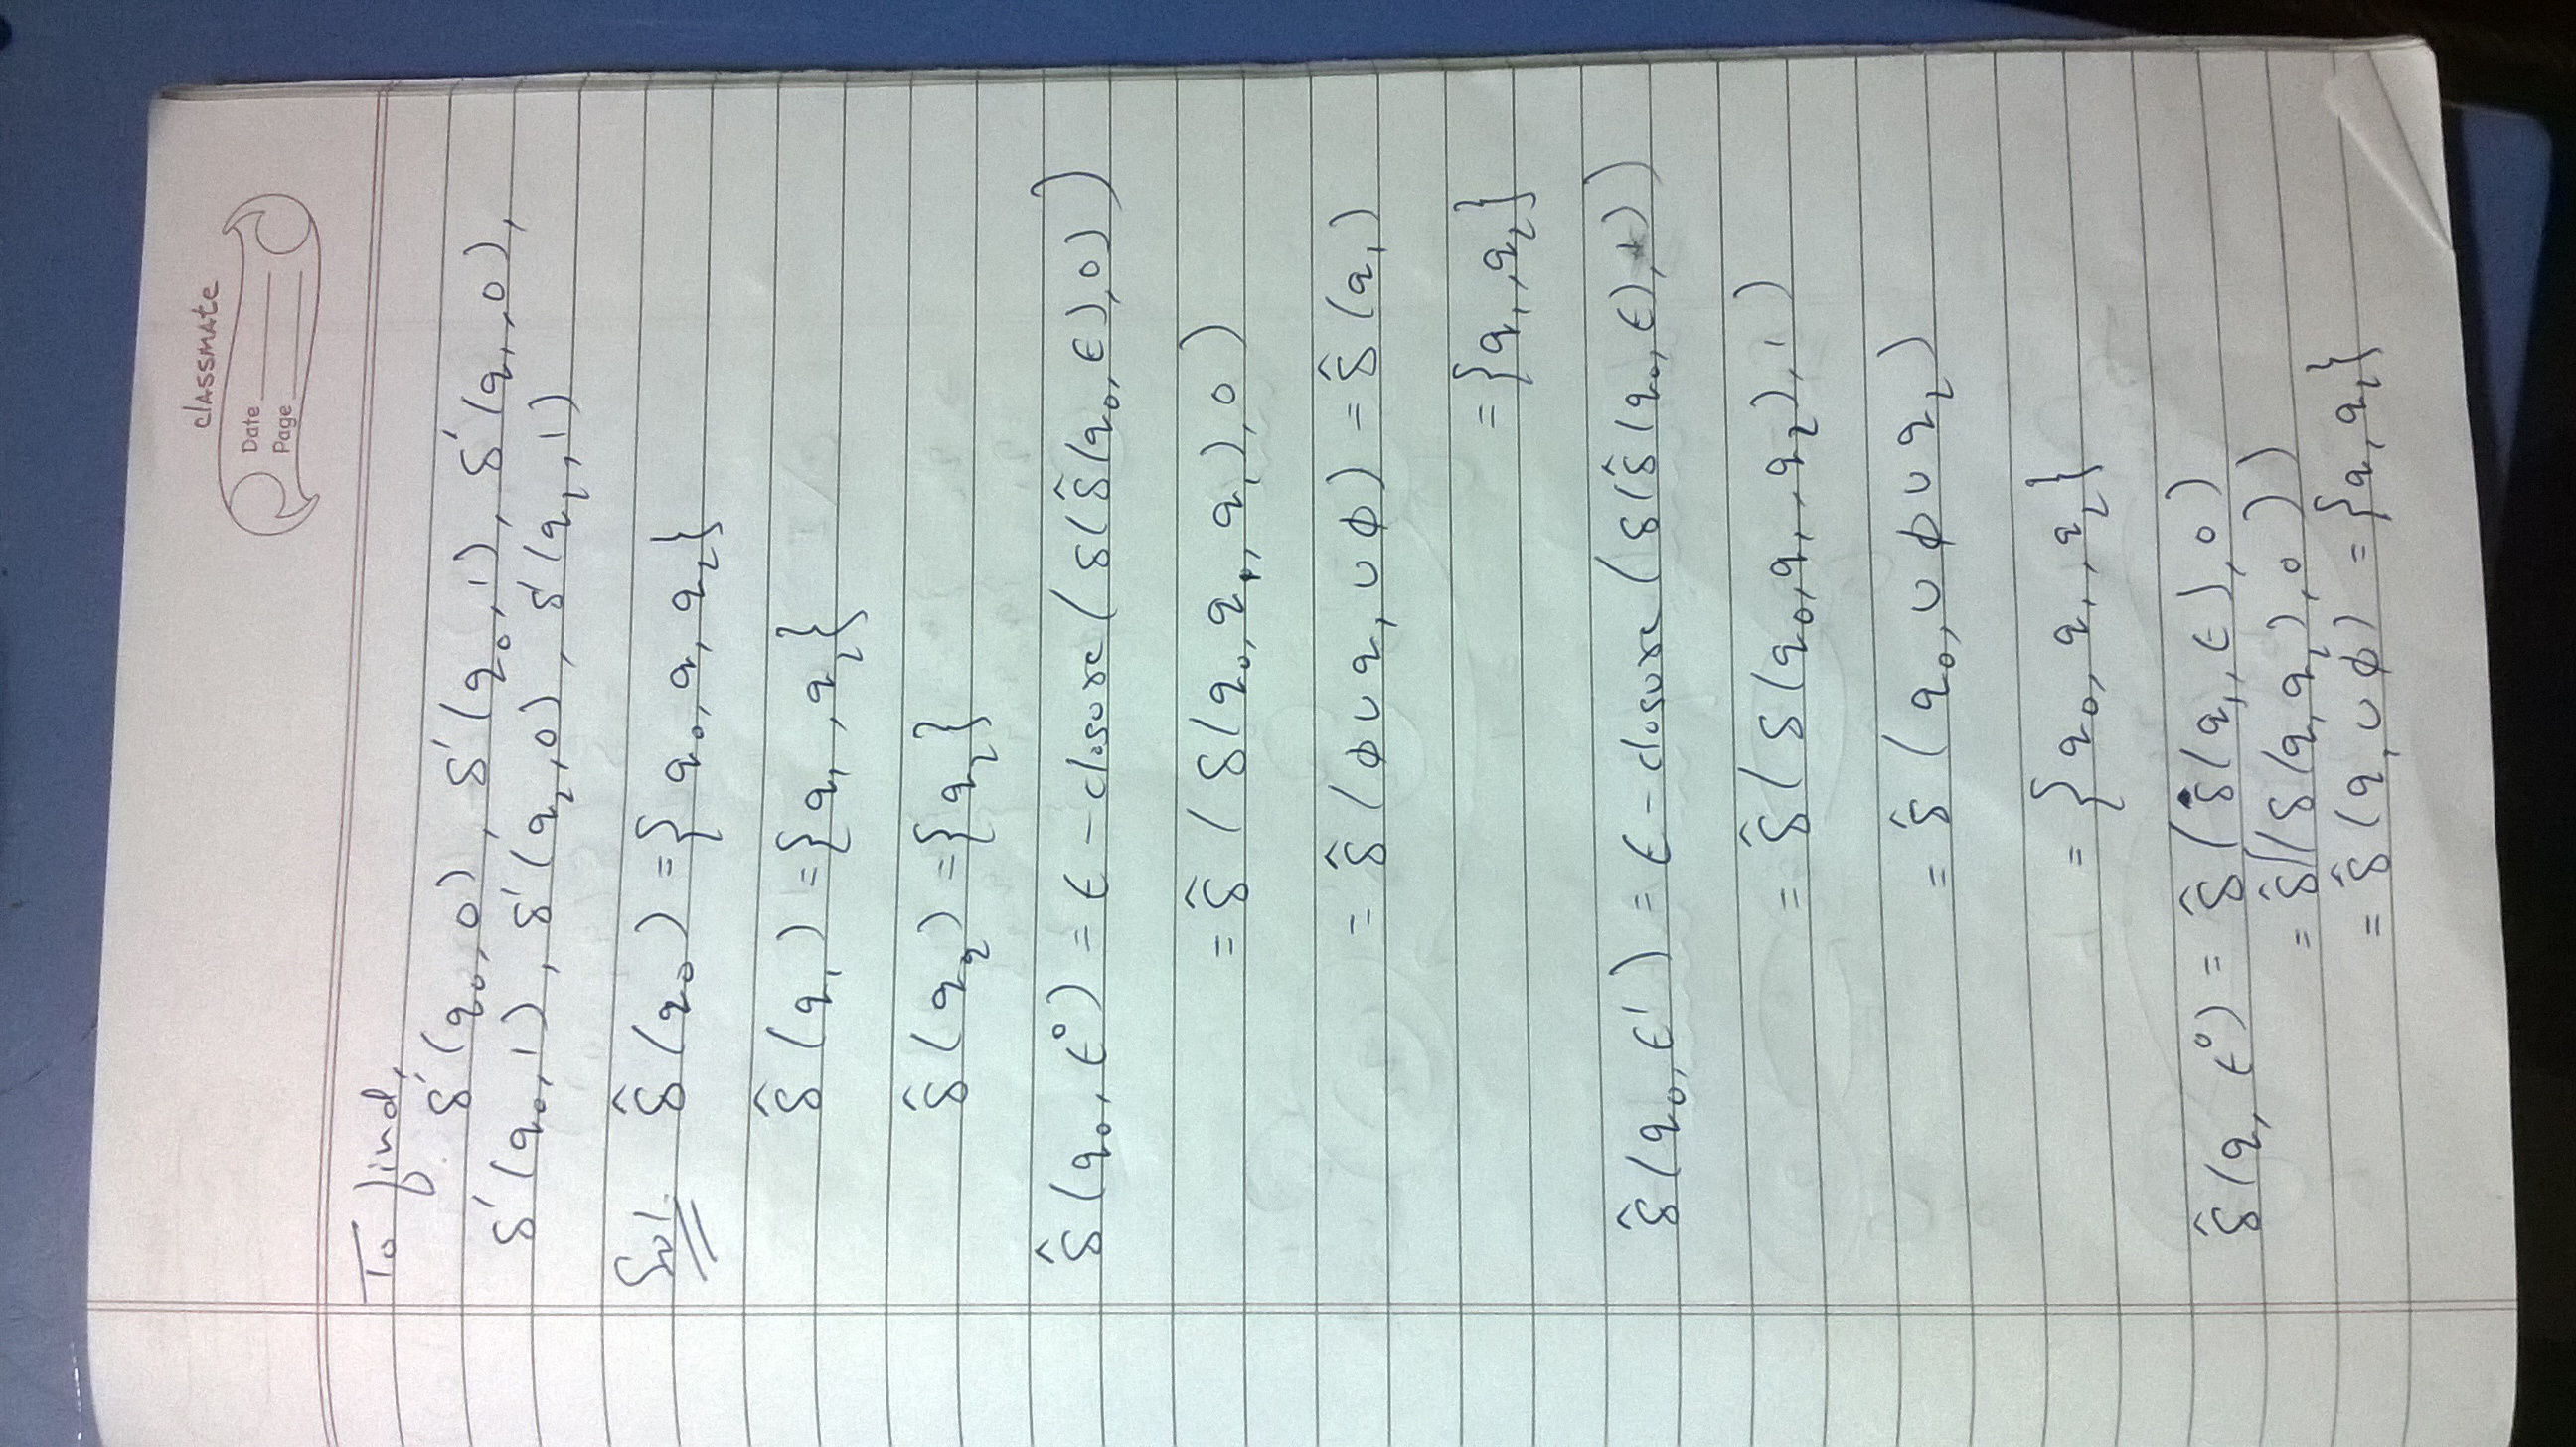 classmate
Date
Page
To find,
δ'(q₀, 0), δ'(q₀, 1), δ'(q₁, 0),
δ'(q₀, 1), δ'(q₂, 0), δ'(q₂, 1)
Sol. δ̂(q₀) = {q₀, q₁ q₂}
δ̂(q₁) = {q₁, q₂}
δ̂(q₂) = {q₂}
δ̂(q₀, ϵ⁰) = ϵ-closure(δ(δ̂(q₀, ϵ), 0))
= δ̂(δ(q₀, q₀, q₁), 0)
= δ̂(ϕ ∪ q₁ ∪ ϕ) = δ̂(q₁)
= {q₁, q₂}
δ̂(q₀, ϵ¹) = ϵ-closure(δ(δ̂(q₀, ϵ), 1))
= δ̂(δ(q₀, q₁, q₂), 1)
= δ̂(q₀, ∪ ϕ ∪ q₂)
= {q₀, q₁, q₂}
δ̂(q₁ ϵ⁰) = δ̂(δ(q₁, ϵ), 0)
= δ̂((δ(q₁ q₂), 0))
= δ̂(q₁ ∪ ϕ) = {q₁ q₂}